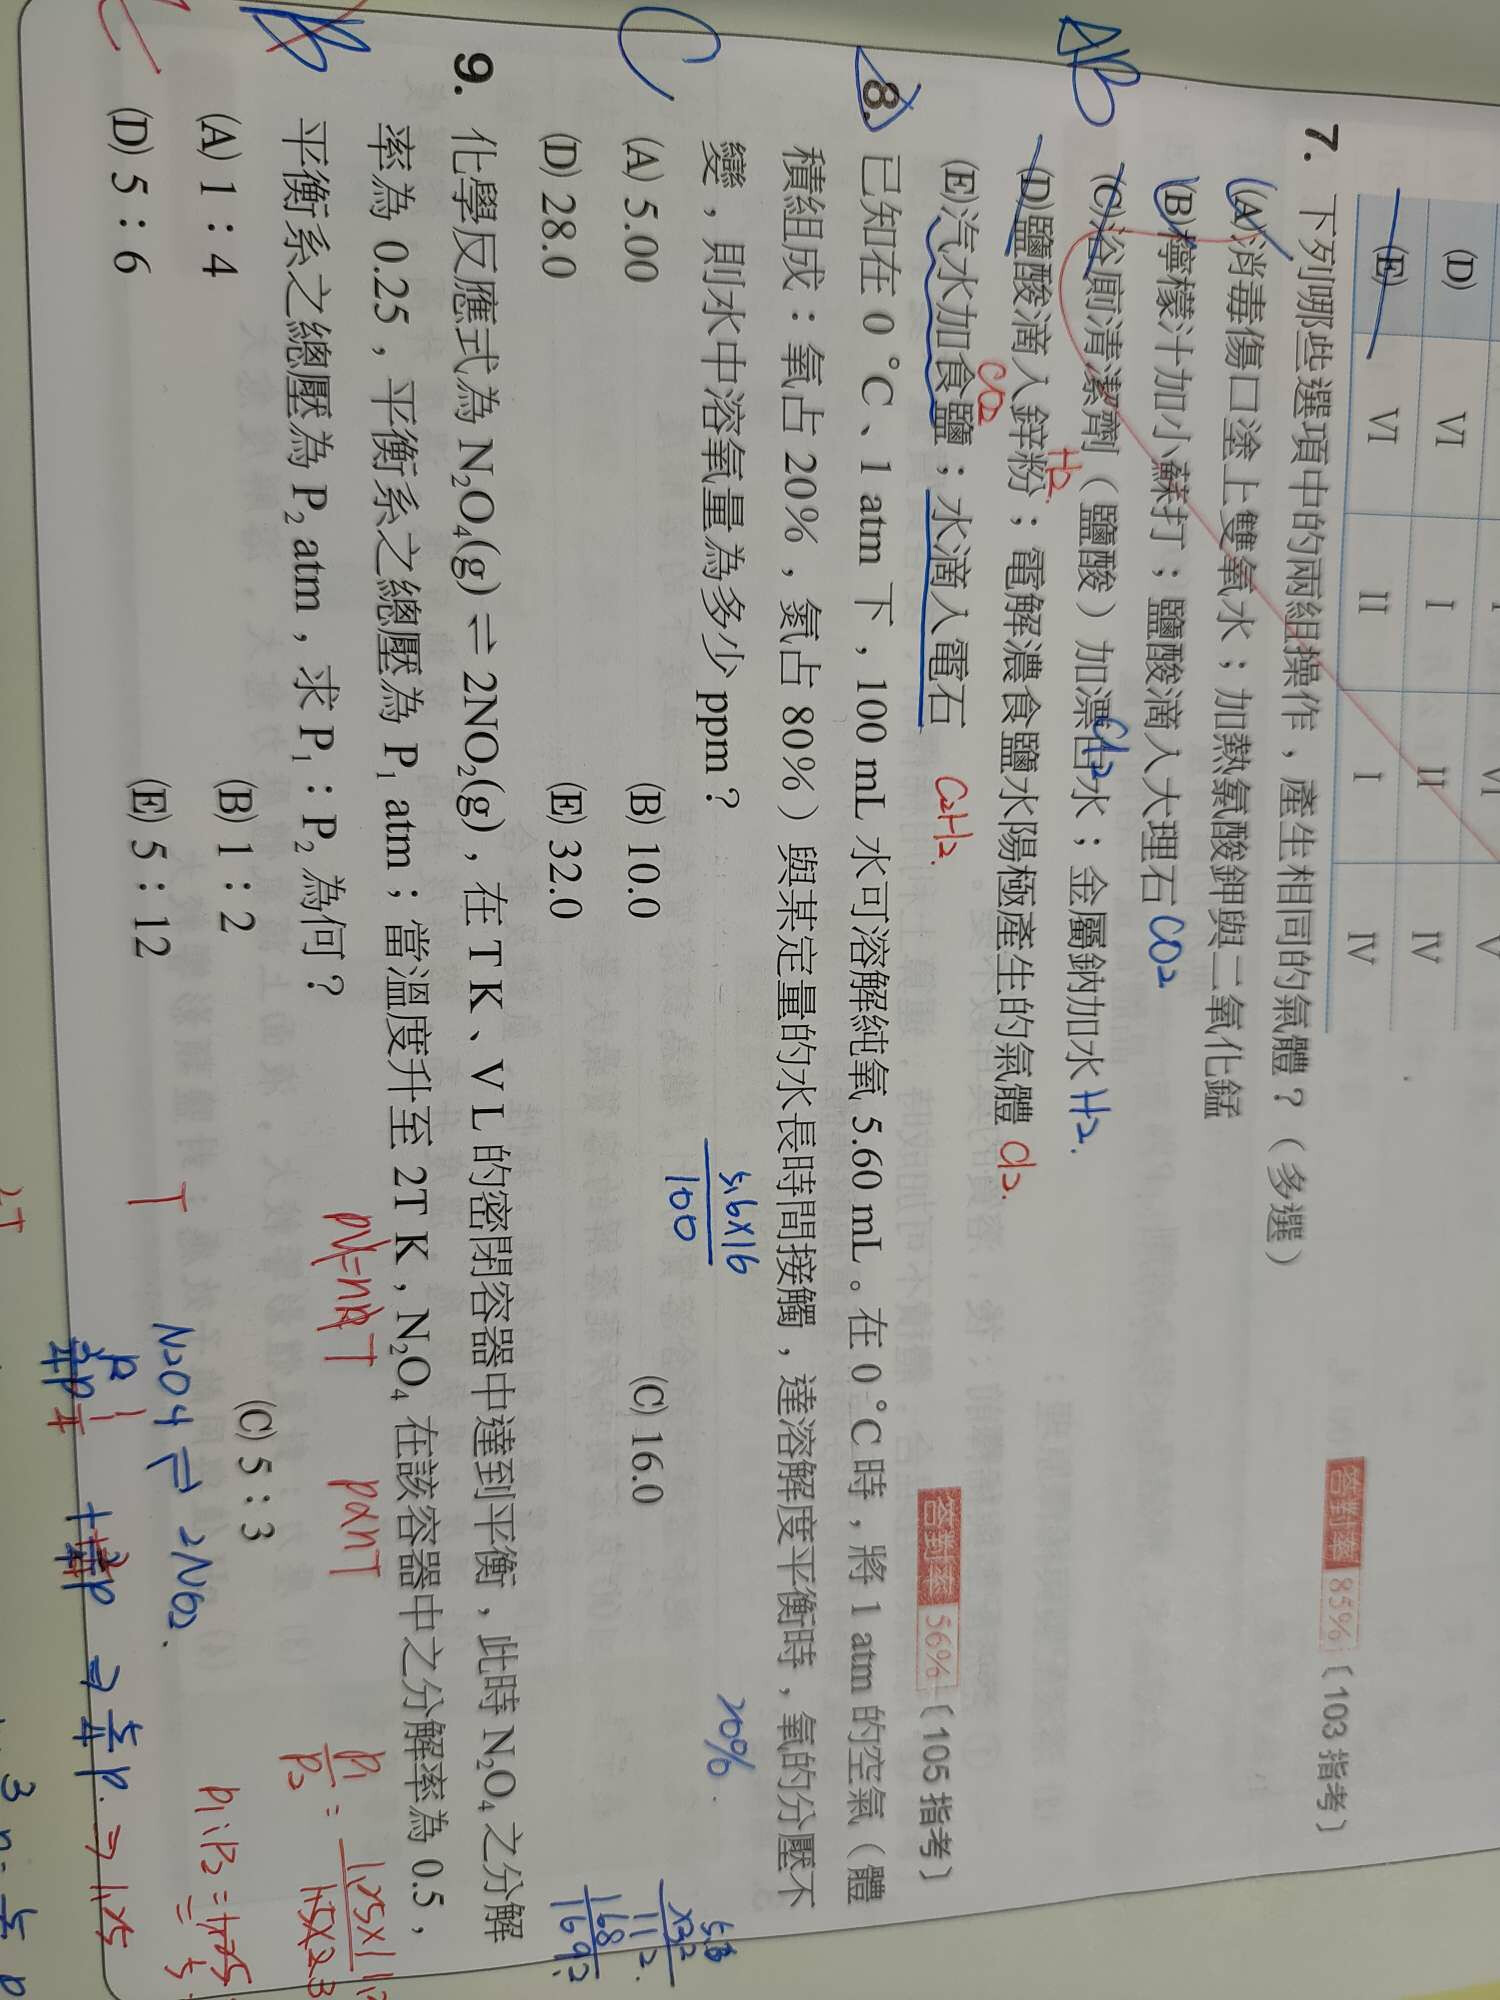 (D) VI I II IV
(E) VI II I IV
答對率 85%〔103 指考〕
AB
7. 下列哪些選項中的兩組操作，產生相同的氣體？（多選）
(A)消毒傷口塗上雙氧水；加熱氯酸鉀與二氧化錳
(B)檸檬汁加小蘇打；鹽酸滴入大理石 CO2
(C)浴廁清潔劑（鹽酸）加漂白水；金屬鈉加水 H2.
Cl2
(D)鹽酸滴入鋅粉；電解濃食鹽水陽極產生的氣體 Cl2.
H2
(E)汽水加食鹽；水滴入電石 C2H2.
CO2
答對率 56%〔105 指考〕
8. 已知在 0 °C、1 atm 下，100 mL 水可溶解純氧 5.60 mL。在 0 °C 時，將 1 atm 的空氣（體
積組成：氧占 20%，氮占 80%）與某定量的水長時間接觸，達溶解度平衡時，氧的分壓不
變，則水中溶氧量為多少 ppm？
5.6×16
100
20%.
C
(A) 5.00 (B) 10.0 (C) 16.0
(D) 28.0 (E) 32.0
5.6
×32
112
168
9. 化學反應式為 N₂O₄(g) ⇌ 2NO₂(g)，在 T K、V L 的密閉容器中達到平衡，此時 N₂O₄ 之分解
率為 0.25，平衡系之總壓為 P₁ atm；當溫度升至 2T K，N₂O₄ 在該容器中之分解率為 0.5，
平衡系之總壓為 P₂ atm，求 P₁：P₂ 為何？
PV=nRT
PαnT
B
(A) 1：4 (B) 1：2 (C) 5：3
(D) 5：6 (E) 5：12
T
N2O4 ⇌ 2NO2.